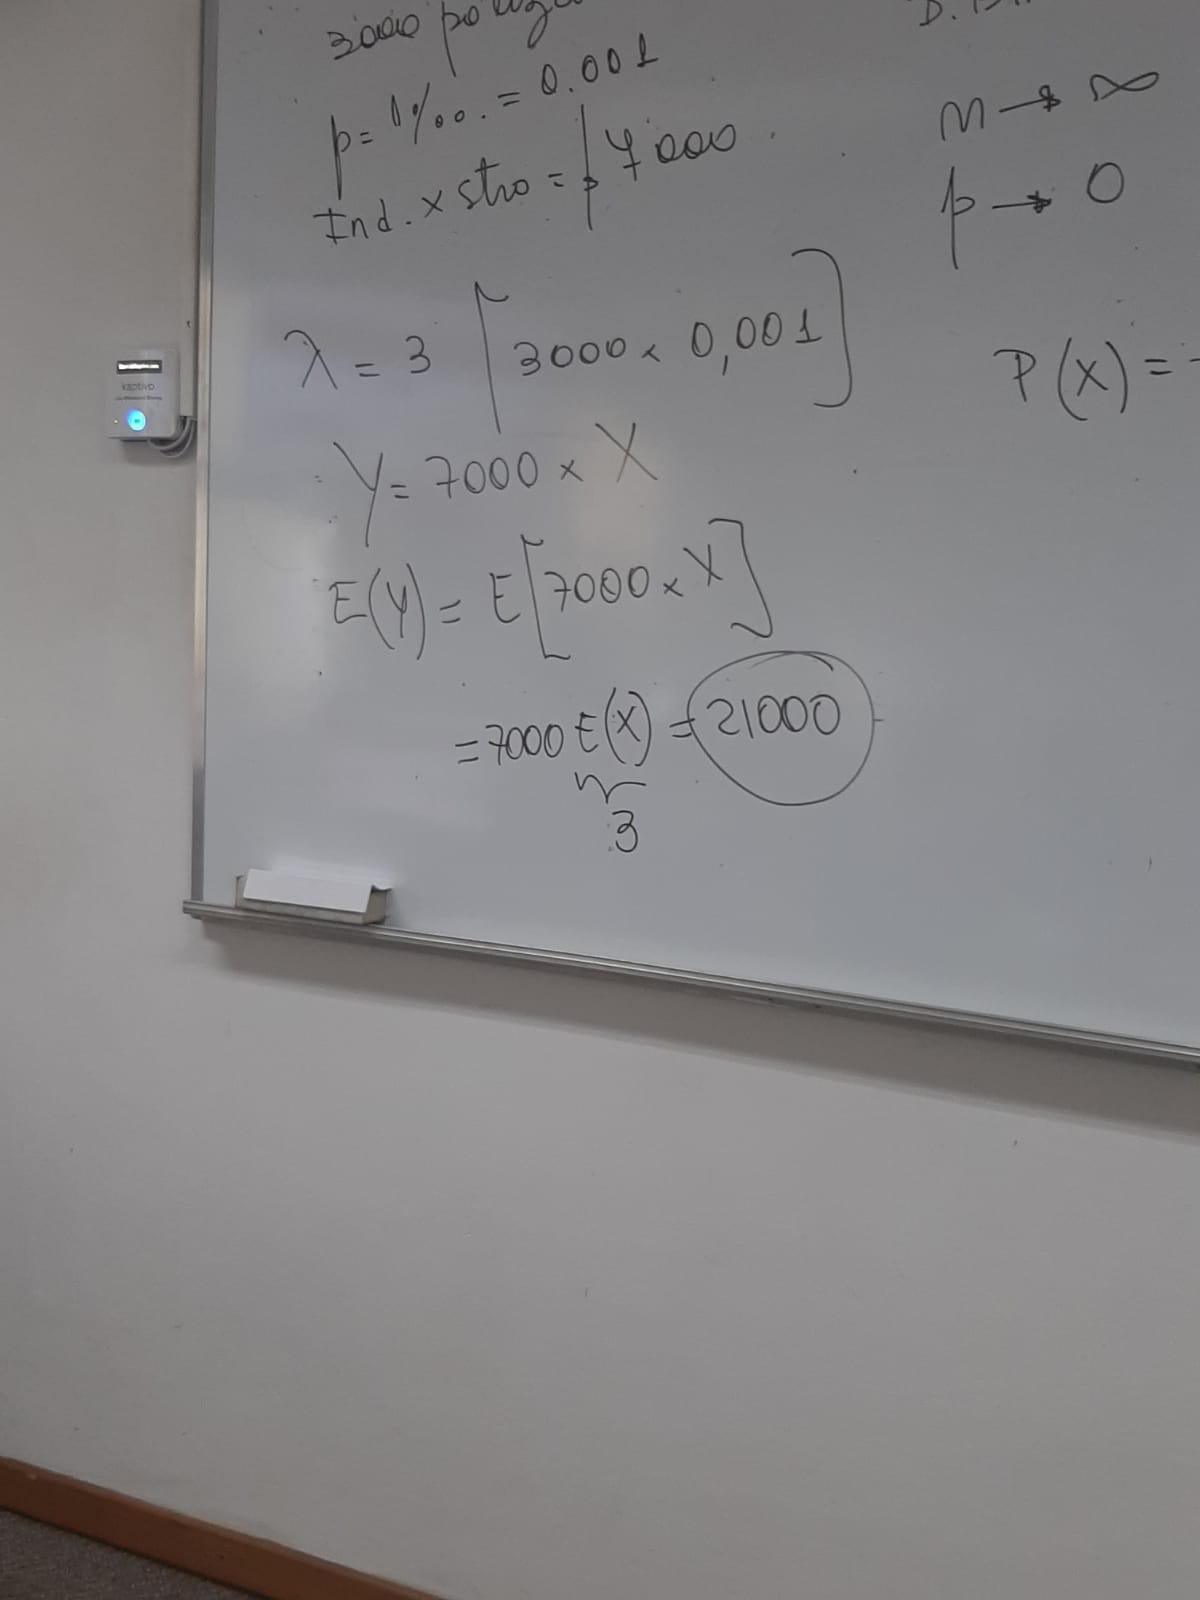 3000 poliza
p= 1‰. = 0.001
Ind. x stro = $ 7000.
λ = 3 [3000 x 0,001]
Y= 7000 x X
E(Y) = E[7000 x X]
= 7000 E(X) = 21000
3
n → ∞
p → 0
P(X) =
kaptivo